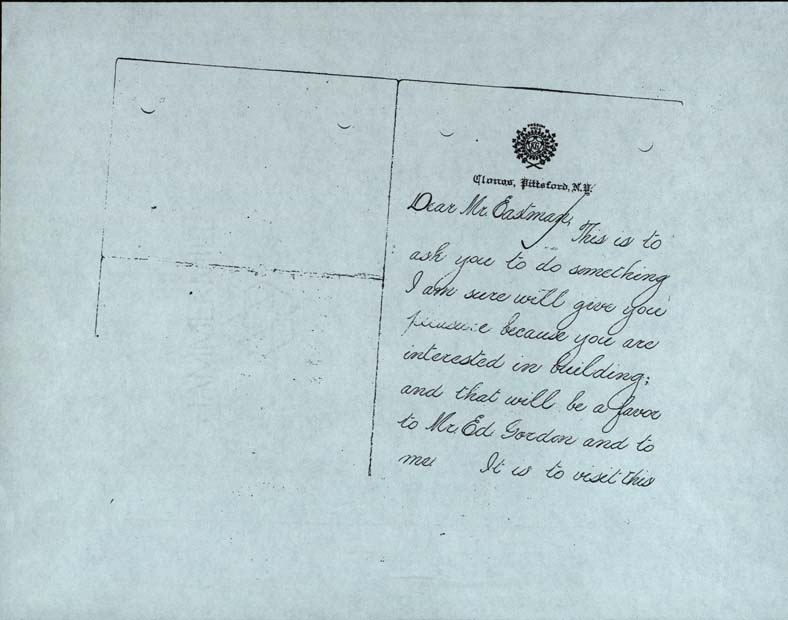 Clonos, Pittsford, N.Y.
Dear Mr. Eastman,
This is to
ask you to do something
I am sure will give you
pleasure because you are
interested in building;
and that will be a favor
to Mr. Ed. Gordon and to
me. It is to visit this